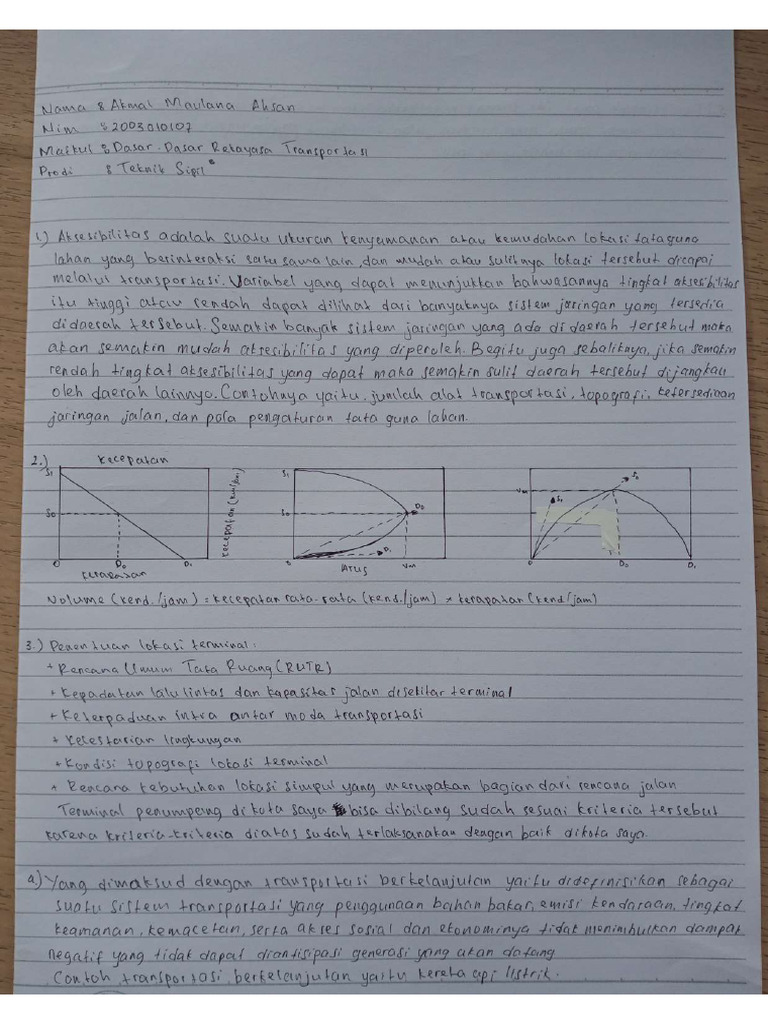 Nama : Akmal Maulana Ahsan
Nim : 2003010107
Matkul : Dasar-Dasar Rekayasa Transportasi
Prodi : Teknik Sipil
1.) Aksesibilitas adalah suatu ukuran kenyamanan atau kemudahan lokasi tata guna
lahan yang berinteraksi satu sama lain, dan mudah atau sulitnya lokasi tersebut dicapai
melalui transportasi. Variabel yang dapat menunjukkan bahwasannya tingkat aksesibilitas
itu tinggi atau rendah dapat dilihat dari banyaknya sistem jaringan yang tersedia
didaerah tersebut. Semakin banyak sistem jaringan yang ada di daerah tersebut maka
akan semakin mudah aksesibilitas yang diperoleh. Begitu juga sebaliknya, jika semakin
rendah tingkat aksesibilitas yang dapat maka semakin sulit daerah tersebut dijangkau
oleh daerah lainnya. Contohnya yaitu, jumlah alat transportasi, topografi, ketersediaan
jaringan jalan, dan pola pengaturan tata guna lahan.
2.) Kecepatan
S1
S0
0 D0 D1
Kerapatan
Kecepatan (km/jam)
S1
S0
D0
D1
0 Arus Vm
Vm
S1
S0
0 D0 D1
Volume (kend./jam) = kecepatan rata-rata (kend./jam) × kerapatan (kend/jam)
3.) Penentuan lokasi terminal :
+ Rencana Umum Tata Ruang (RUTR)
+ Kepadatan lalu lintas dan kapasitas jalan disekitar terminal
+ Keterpaduan intra antar moda transportasi
+ Kelestarian lingkungan
+ Kondisi topografi lokasi terminal
+ Rencana kebutuhan lokasi simpul yang merupakan bagian dari rencana jalan
Terminal penumpang di kota saya bisa dibilang sudah sesuai kriteria tersebut
karena kriteria-kriteria diatas sudah terlaksanakan dengan baik dikota saya.
4) Yang dimaksud dengan transportasi berkelanjutan yaitu didefinisikan sebagai
suatu sistem transportasi yang penggunaan bahan bakar, emisi kendaraan, tingkat
keamanan, kemacetan, serta akses sosial dan ekonominya tidak menimbulkan dampak
negatif yang tidak dapat diantisipasi generasi yang akan datang
Contoh transportasi berkelanjutan yaitu kereta api listrik.